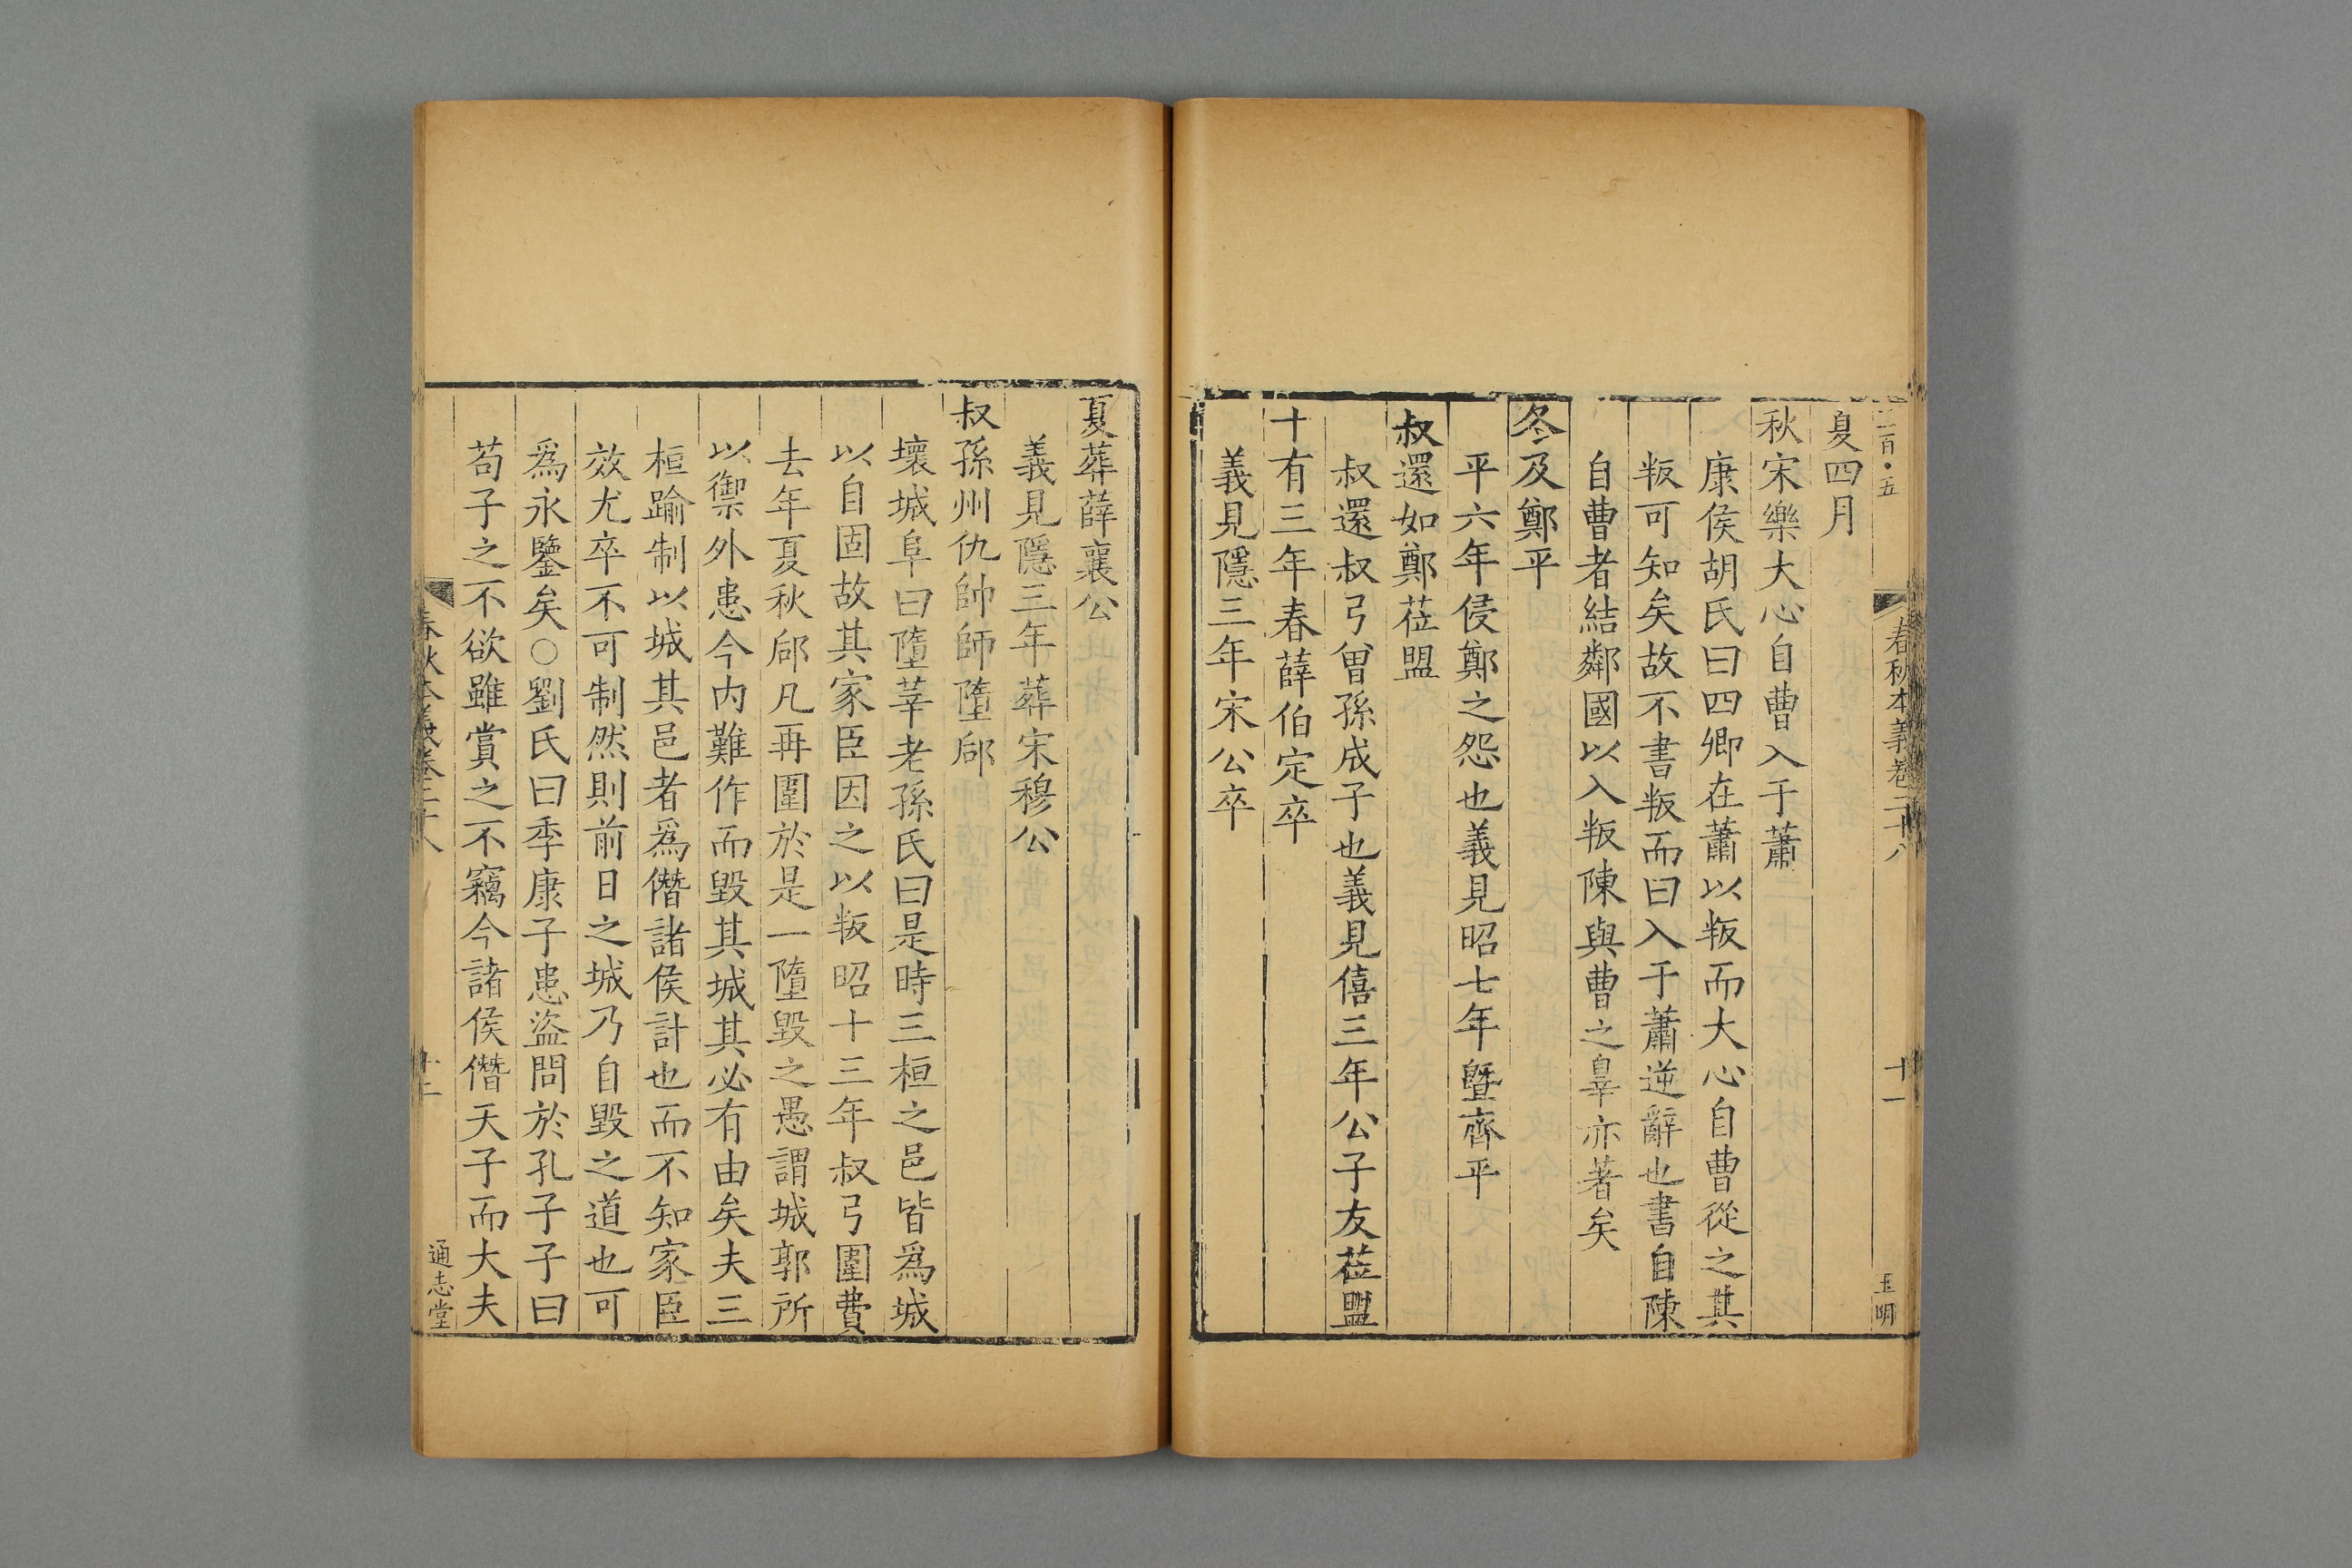 二百·五
春秋本義卷二十八
十一
玉明
夏四月
秋宋樂大心自曹入于蕭
康侯胡氏曰四卿在蕭以叛而大心自曹從之其
叛可知矣故不書叛而曰入于蕭逆辭也書自陳
自曹者結鄰國以入叛陳與曹之辠亦著矣
冬及鄭平
平六年侵鄭之怨也義見昭七年暨齊平
叔還如鄭莅盟
叔還叔弓曾孫成子也義見僖三年公子友莅盟
十有三年春薛伯定卒
義見隱三年宋公卒
夏葬薛襄公
義見隱三年葬宋穆公
叔孫州仇帥師墮郈
壞城阜曰墮莘老孫氏曰是時三桓之邑皆爲城
以自固故其家臣因之以叛昭十三年叔弓圍費
去年夏秋郈凡再圍於是一墮毀之愚謂城郭所
以禦外患今內難作而毀其城其必有由矣夫三
桓踰制以城其邑者爲僭諸侯計也而不知家臣
效尤卒不可制然則前日之城乃自毀之道也可
爲永鑒矣○劉氏曰季康子患盜問於孔子子曰
苟子之不欲雖賞之不竊今諸侯僭天子而大夫
春秋本義卷二十八
十二
通志堂